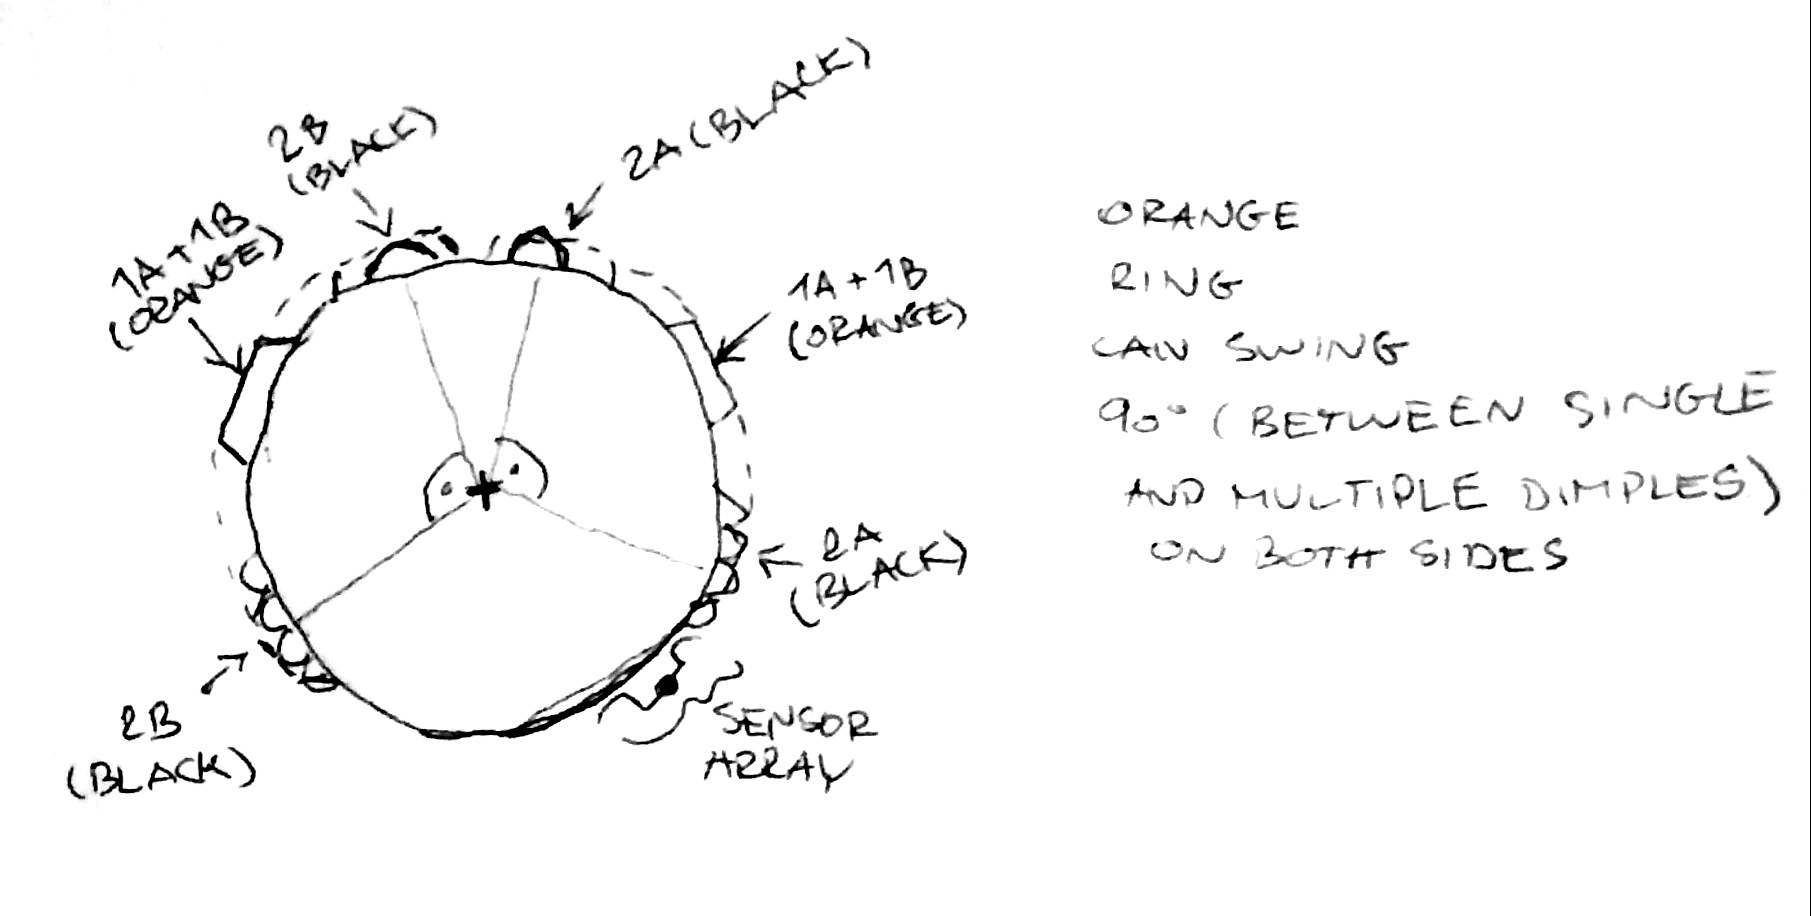 2B
(BLACK)
2A (BLACK)
1A + 1B
(ORANGE)
1A + 1B
(ORANGE)
2A
(BLACK)
2B
(BLACK)
SENSOR
ARRAY
ORANGE
RING
CAN SWING
90° (BETWEEN SINGLE
AND MULTIPLE DIMPLES)
ON BOTH SIDES